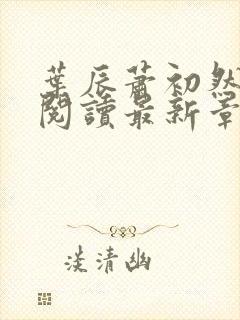 葉辰蕭初然
閱讀最新章
淡清幽